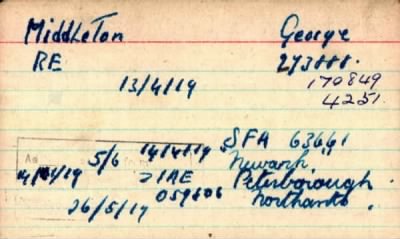 Middleton George
RE 273888.
13/4/19 170849
4251
SFA 63661
5/6 14/4/19 "Newark"
14/4/19 > IAE Peterborough.
059606 Northants.
26/5/19